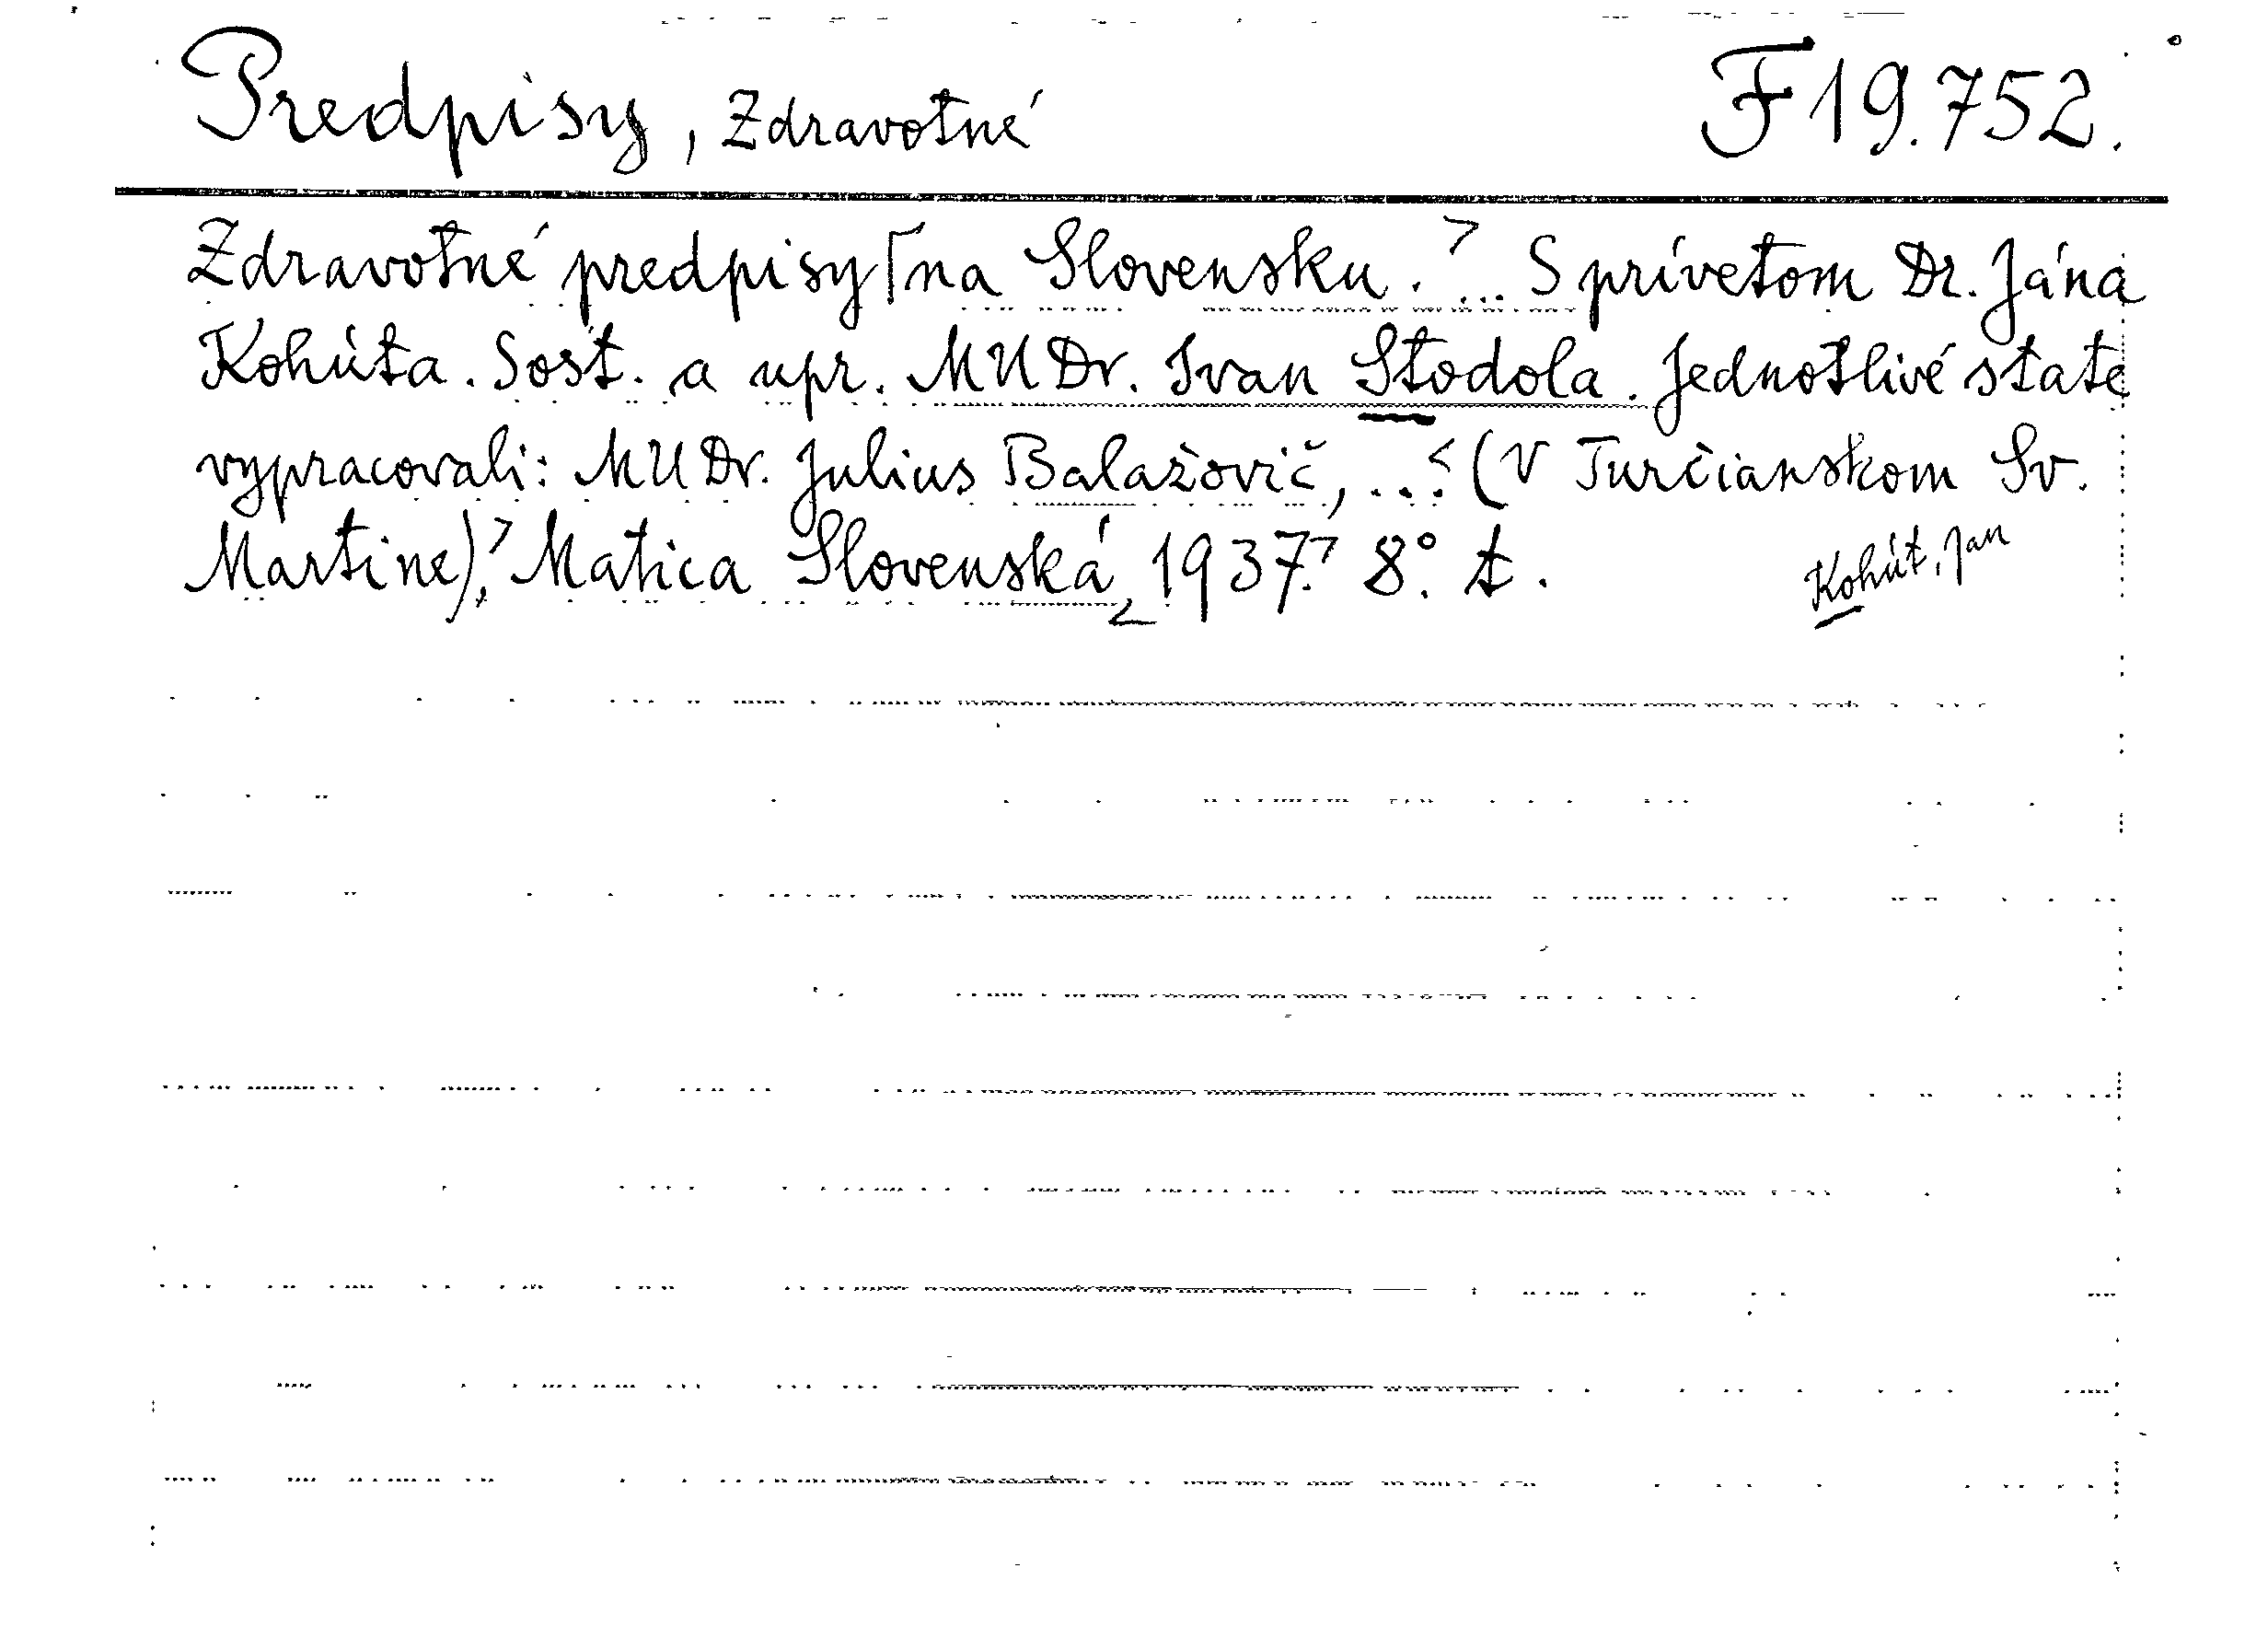 Predpisy, Zdravotné F 19.752.
Zdravotné predpisy na Slovensku. ... S prívetom Dr. Jána
Kohúta. Sost. a upr. MUDr. Ivan Stodola. Jednotlivé state
vypracovali: MUDr. Julius Balažovič, ... (V Turčianskom Sv.
Martine), Matica Slovenská, 1937. 8°. t.
Kohút, Jan